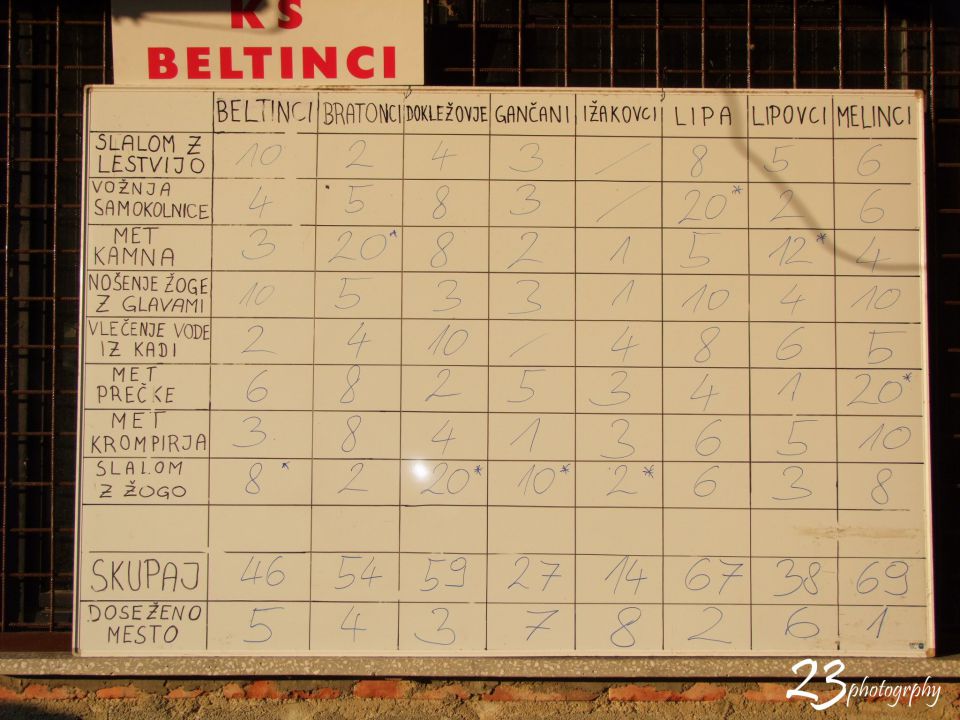 KS
BELTINCI
BELTINCI BRATONCI DOKLEŽOVJE GANČANI IŽAKOVCI LIPA LIPOVCI MELINCI
SLALOM Z LESTVIJO 10 2 4 3 / 8 5 6
VOŽNJA SAMOKOLNICE 4 5 8 3 / 20* 2 6
MET KAMNA 3 20* 8 2 1 5 12* 4
NOŠENJE ŽOGE Z GLAVAMI 10 5 3 3 1 10 4 10
VLEČENJE VODE IZ KADI 2 4 10 / 4 8 6 5
MET PREČKE 6 8 2 5 3 4 1 20*
MET KROMPIRJA 3 8 4 1 3 6 5 10
SLALOM Z ŽOGO 8* 2 20* 10* 2* 6 3 8
SKUPAJ 46 54 59 27 14 67 38 69
DOSEŽENO MESTO 5 4 3 7 8 2 6 1
23photogrphy